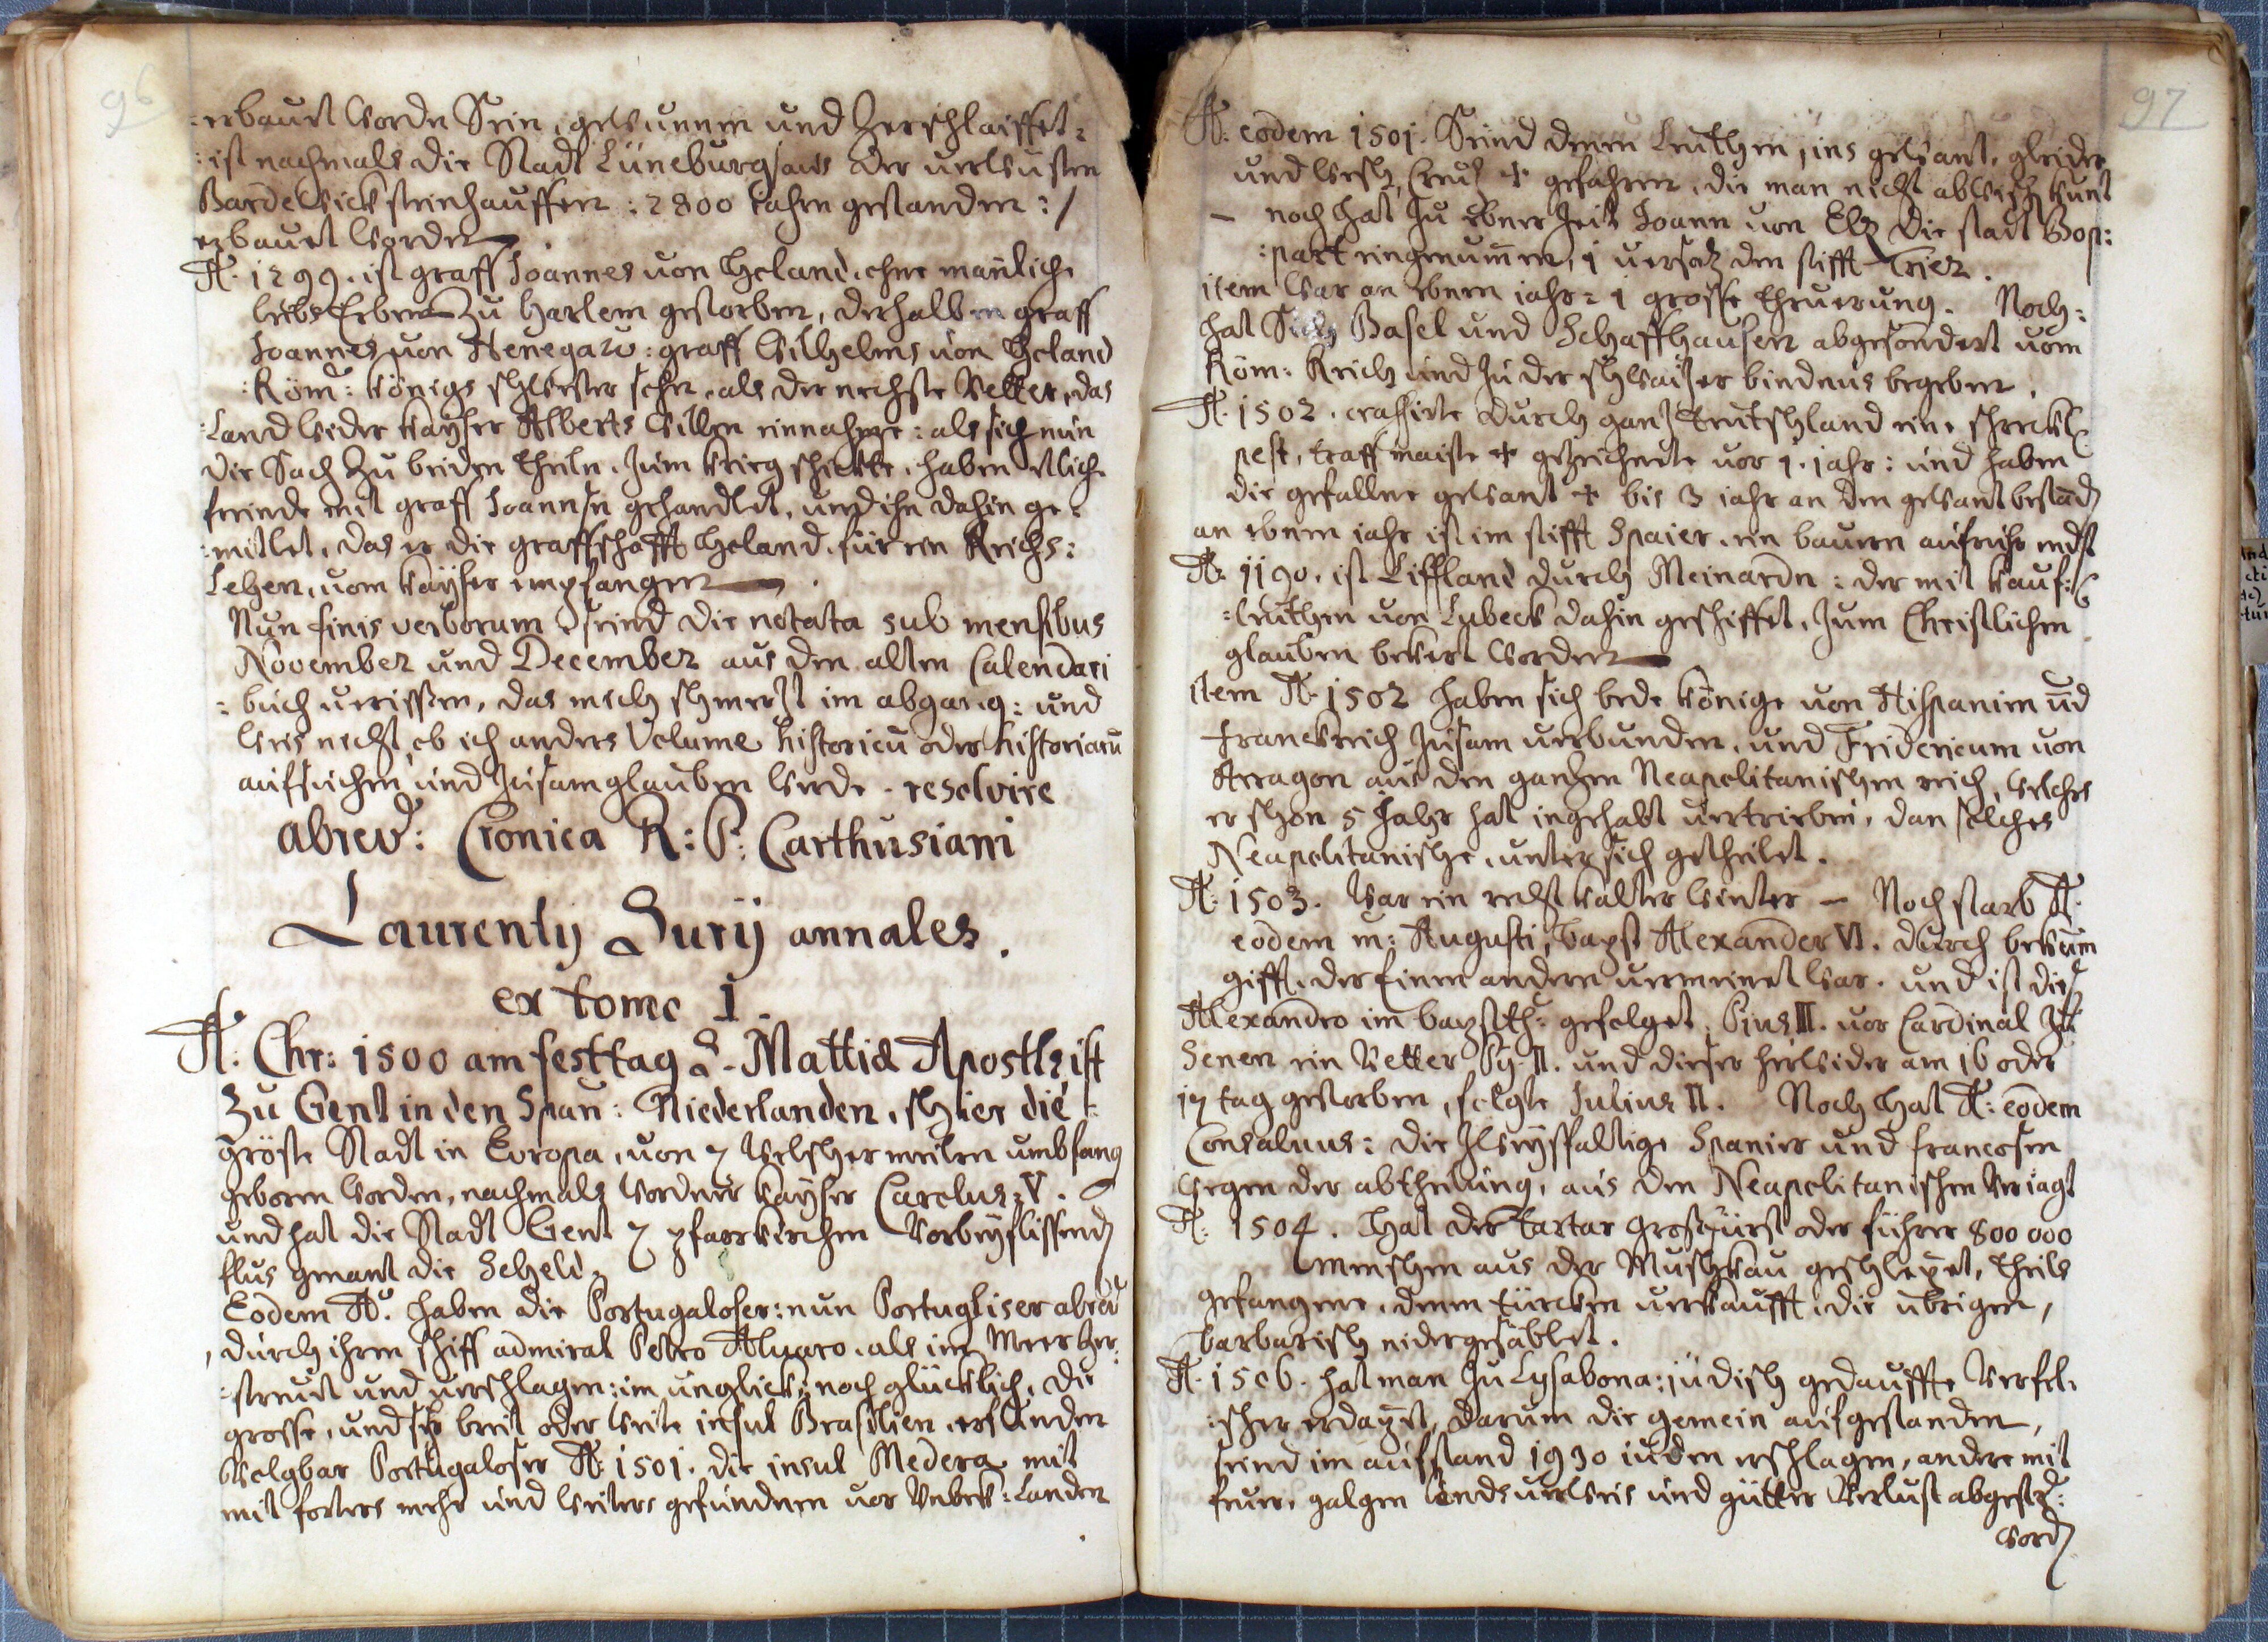 96
:erbaut worden Sein, gewunnen und Zerschlaiffet:
:ist nachmals die Stadt Lüneburg, aus der verwüsten
Bardewick steinhauffen : 2800 iahre gestanden :/
erbauet worden.
A: 1299. ist graff Joannes von Holand, ohne mänliche
leibs Erben Zu Harlem gestorben, derhalben graff
Joannes von Henegaw: graff Wilhelms von Holand
:Röm: königs schwester sohn, als der nechste Vetter, das
:Land wider kayser Alberts willen einnahme: als sich nun
die Sach Zu beiden theiln, zum krieg schickte, haben etliche
freinde mit graff Joannsn gehandlet, und ihn dahin ge:
:mitlet, das er die graffschafft Holand, für ein Reichs:
Lehen, vom kayser empfangen.
Nun finis verborum seind die notata sub mensibus
November und December aus den alten Calendari
:buch verissen, das mich schmerzt im abgang: und
weis nicht, ob ich anders Volume historicu oder historiaru
aufsuchen und zusamglauben werde. resolvire
abrev: Cronica R: P: Carthusiani
Laurenty Surij annales.
ex tomo 1.
A: Chr: 1500 am festtag S. Mattiæ Apostls ist
Zu Gent in den Span: Niederlanden, schier die
gröste Stadt in Europa, von 7 welscher meilen umbfang
geboren worden, nachmals wordner kayser Carolus: V.
und hat die Stadt Gent 7 pfarrkirchen Vorbeyflissend
flus genant die Scheld.
Eodem Ao. haben die Portugaloser: nun Portugliser abred
durch ihren schiff admiral Petro Alvaro, als im Meer her
:streut und verschlagen: im unglick noch glücklich, die
grosse, und sehr breit oder weite insul Brasilien, erfunden
Portugaloser A: 1501. die insul Medera mit
mit forters mehr und weiters gefundnen vor Unbek: Landen
97
A: eodem 1501. Seind denen Leuthen, ins gewant, gleider
und wesch, Creutz + gefahren, die man nicht abwesch kunt
– noch hat zu ebner Zeit Joann von Elz die stadt Bop:
:part eingenumen, 1 versatz den stifft Trier.
item war an ebnem iahr: 1 grosse theuerung. Noch:
hat Sich Basel und Schaffhausen abgesondert vom
Röm: Reich und zu der schwaizer bindnus begeben.
A: 1502. crassirte durch ganz Teutschland eine schreckl
pest, traff maiste + gezeichnete vor 1. iahr: und haben
die gefallene gewant + bis 3 iahr an den gewant bestand
an ebnem iahr ist im stifft Spaier, ein bauren aufruhr endst
A: 1190. ist Liffland durch Meinardn: der mit kauf:
:leuthen von Lubeck dahin geschiffet, zum Christlichen
glauben bekert worden
item A: 1502 haben sich bede könige von Hispanien und
Franckreich zusam verbunden, und Fridericum von
Arragon aus den ganzen Neapolitanischen reich, welches
er schon 5 Jahr hat ingehabt vertrieben, dan solches
Neapolitanische, unter sich getheilet.
A: 1503. war ein recht kalter winter – Noch starb A:
eodem m: Augusti, bapst Alexander VI. durch bekum
gifft, der Einen andern vermeinet war. und ist dis
Alexandro im bapsth: gefolget, Pius III. vor Cardinal zu
Senen ein Vetter Py II. und dieser hinwider am 16 oder
17 tag gestorben, folgte Julius II. Noch hat A: eodem
Consalvus: die zweyspaltige Spanier und francosen
wegen der abtheilung, aus den Neapolitanischen Veriagt
A: 1504. Hat der Tartar Grosfürst oder führer 800 000
menschen aus der Muschkau geschlept, theils
gefangene, denen türcken verkaufft, die übrigen,
barbarisch nidergesablet.
A: 1506. hat man zu Lysabona: jüdisch gedauffte
:scher erdapt, darum die gemein aufgestanden,
seind im aufstand 1930 iuden erschlagen, andere mit
feuer, galgen lands verweis und gütter Verlust abgestr:
word